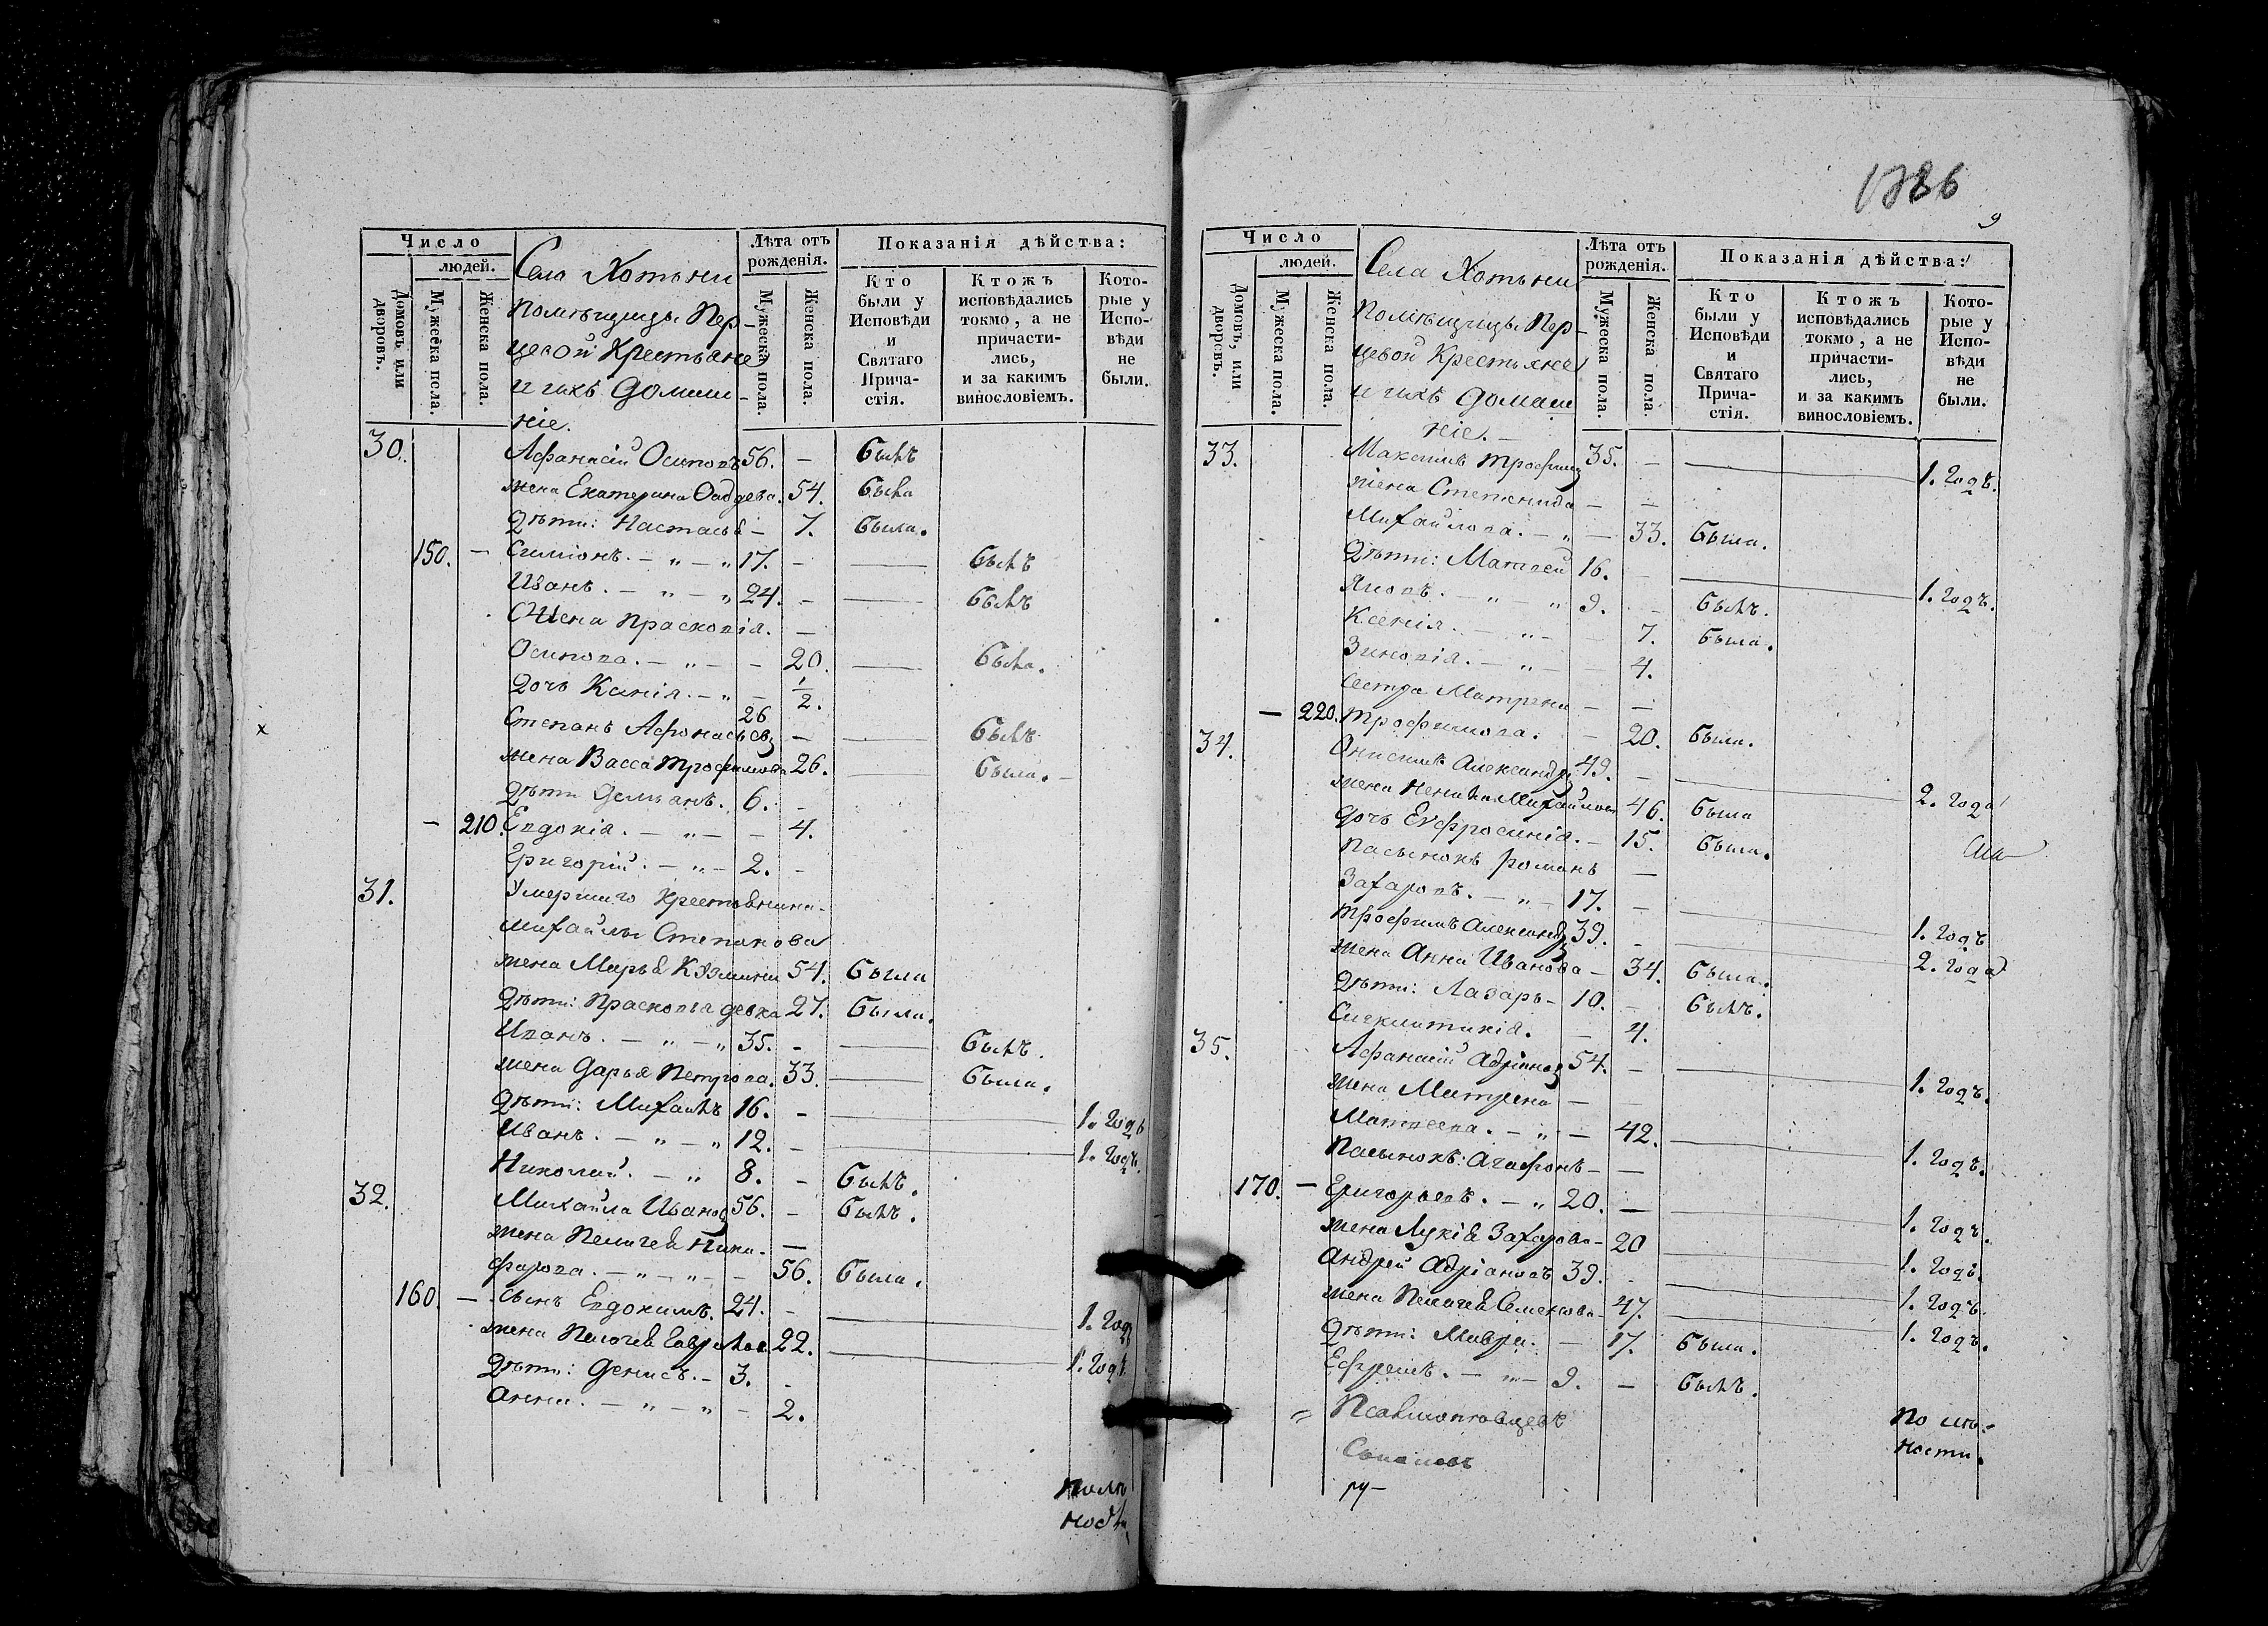 1786
9
Число
людей.
Домовъ или дворовъ.
Мужеска пола.
Женска пола.
Села Хотыни
помѣщицы Пер-
цевой Крестьяне
и ихъ домаш-
ніе.
Лѣта отъ рожденія.
Мужеска пола.
Женска пола.
Показанія дѣйства:
Кто были у Исповѣди и Святаго Причастія.
Ктожъ исповѣдались токмо, а не причастились, и за какимъ винословіемъ.
Которые у Исповѣди не были.
30. Афанасій Осиповъ 56. — былъ
жена Екатерина Фаддеева. 54. была
дѣти: Настасья — 7. была.
150. — Симіонъ. — „ — „ 17. — — былъ
Иванъ. — „ — „ 24. — — былъ
Жена Прасковія. —
Осипова. — „ — — 20. — была.
дочь Ксенія. — „ — 1/2.
Степанъ Афонасьевъ 26 — — былъ
жена Васса Трофимова 26. — была. —
дѣти Демьянъ. 6. -
— 210. Евдокія. — „ — — 4.
Григорій. — „ — 2. -
31. Умершаго крестьянина
Михайлы Степанова
жена Марья Кузмина 54. была
дѣти: Прасковья девка 27. была.
Иванъ. — „ — „ 35. - — былъ.
жена Дарья Петрова. 33. — была.
дѣти: Михаилъ 16. - — 1. годъ
Иванъ. — „ — „ 12. - — 1. годъ.
Николай. — „ 8. - былъ.
32. Михайла Ивановъ 56. - былъ.
жена Пелагея Ники- —
форова. — „ — „ — 56. была.
160. — сынъ Евдокимъ. 24. - — 1. годъ
жена Пелагея Гаврилов. 22. — 1. годъ
дѣти: Денисъ. — 3. -
Анна. — „ — „ — 2.
Число
людей.
Домовъ, или дворовъ.
Мужеска пола.
Женска пола.
Села Хотыни
Помѣщицы Пер-
цевой Крестьяне
и ихъ домаш
ніе. —
Лѣта отъ рожденія.
Мужеска пола.
Женска пола.
Показанія дѣйства:
Кто были у Исповѣди и Святаго Причастія.
Ктожъ исповѣдались токмо, а не причастились, и за какимъ винословіемъ.
Которые у Исповѣди не были.
33. Максимъ Трофимов 35. — — 1. годъ.
жена Степанида — —
Михайлова. — „ — 33. была.
дѣти: Матвей 16. - — 1. годъ.
Яковъ. — „ „ 9. - былъ.
Ксенія. — „ — — 7. была.
Зиновія. — „ — — 4.
сестра Матрена — —
— 220. Трофимова. — 20. была.
34. Онисимъ Александр 49. — — 2. года
жена Ненила Михайлова 46. была
дочь Ефросинія. — 15. была.
пасынокъ Романъ —
Захаровъ. — „ — 17. — — 1. годъ
Трофимъ Александ 39. - — 2. года
жена Анна Иванова — 34. была.
дѣти: Лазарь — 10. - былъ.
Синклитикія. — 4.
35. Афанасій Адріанов 54. — — 1. годъ.
жена Матрена — —
Матвеева. — „ — 42. — 1. годъ.
Пасынокъ: Агафонъ — —
170. — Григорьевъ. — „ 20. — — 1. годъ.
жена Лукія Захарова — 20 — 1. годъ.
Андрей Адріановъ 39. - — 1. годъ.
жена Пелагея Семенова — 47. — 1. годъ.
дѣти: Мавра. — 17. была.
Ефремъ. — „ — 9. — былъ.